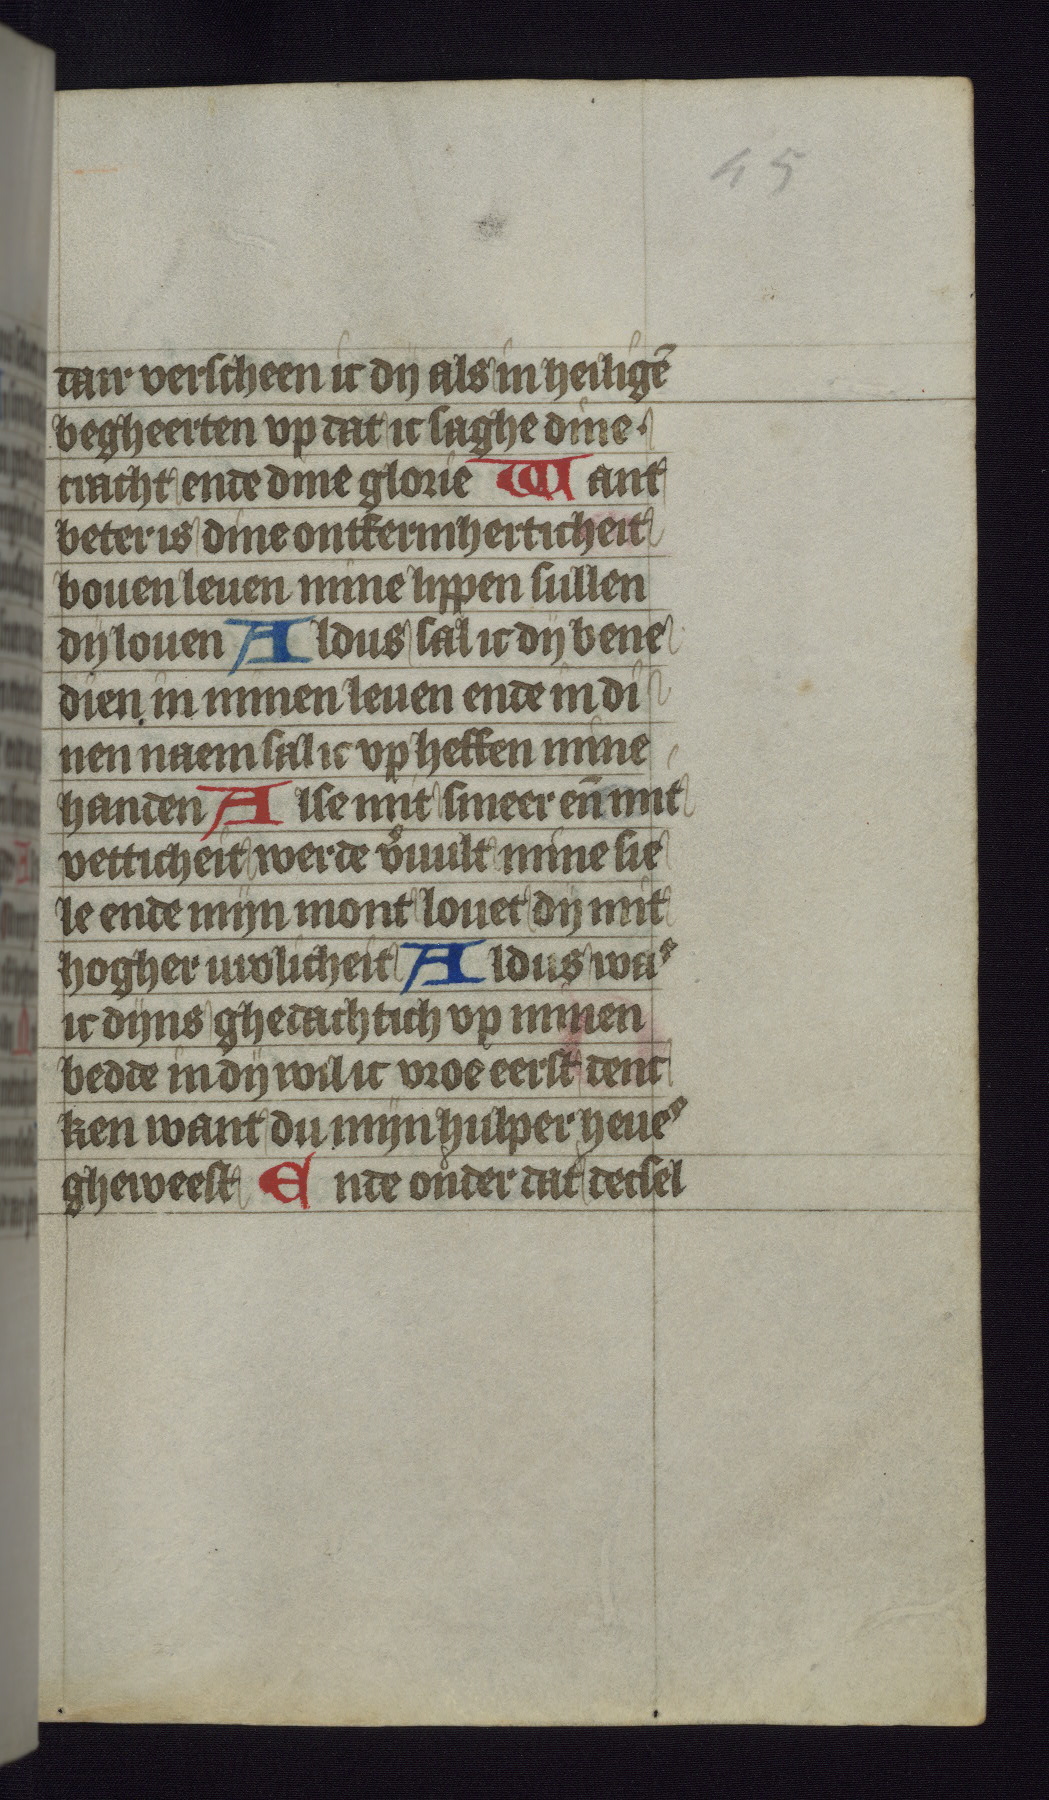 45
dair verscheen ic dy als in heilige̅
begheerten vp dat ic saghe dine
cracht ende dine glorie Want
beter is dine ontfermherticheit
bouen leuen mine lippen sullen
dy louen Aldus sal ic dy bene
dien in minen leuen ende in di
nen naem sal ic vp heffen mine
handen Alse mit smeer en̅ mit
vetticheit werde v᷒uult mine sie
le ende mijn mont louet dy mit
hogher urolicheit Aldus wa᷒
ic dijns ghedachtich vp minen
bedde in dy wil ic vroe eerst denc
ken want du mijn hulper heue᷒
gheweest Ende onder dat decsel